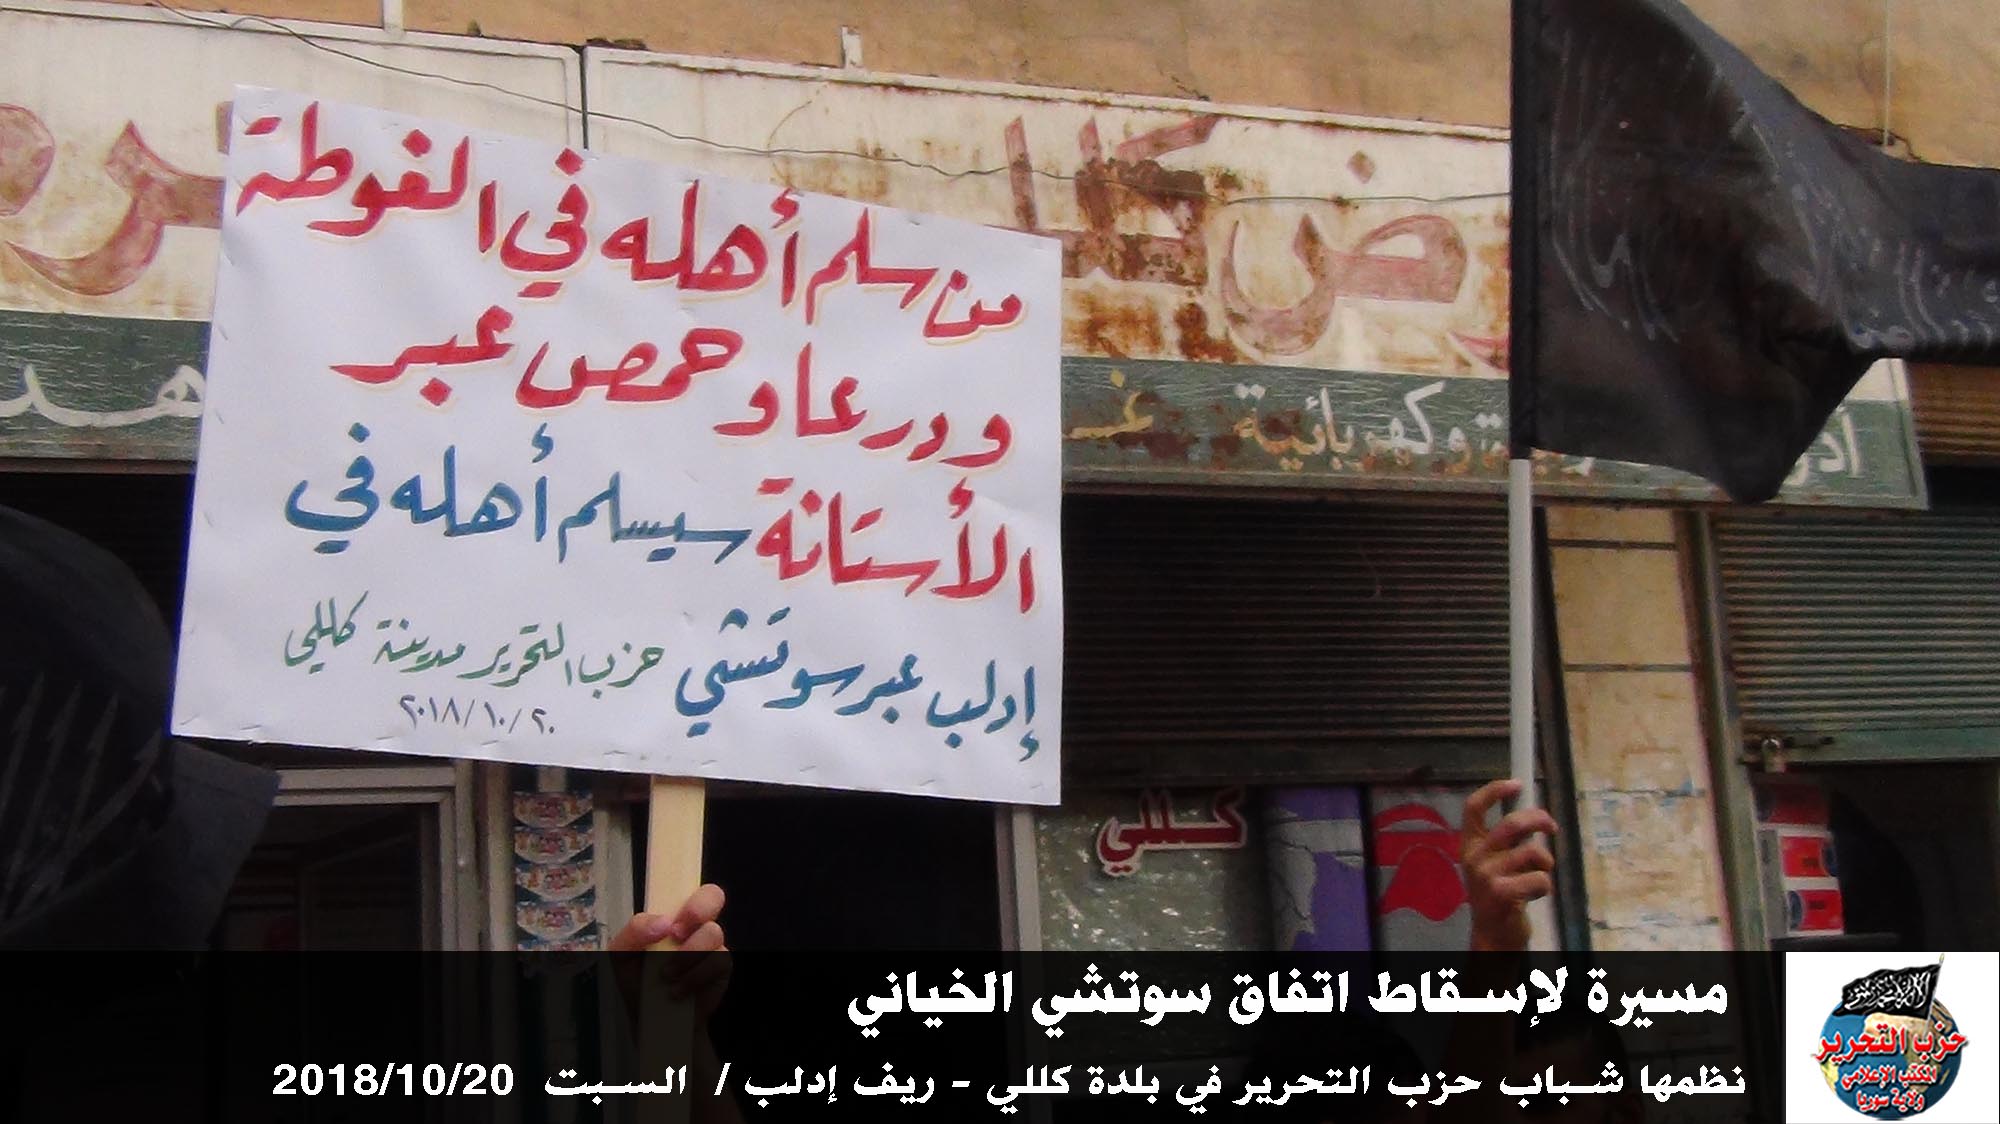 من سلم أهله في الغوطة
ودرعا وحمص عبر
الأستانة سيسلم أهله في
إدلب عبر سوتشي حزب التحرير مدينة كللي
٢٠١٨/١٠/٢٠
وكهربائية
كللي
مسيرة لإسقاط اتفاق سوتشي الخياني
نظمها شباب حزب التحرير في بلدة كللي - ريف إدلب / السبت 2018/10/20
حزب التحرير
المكتب الإعلامي
ولاية سوريا